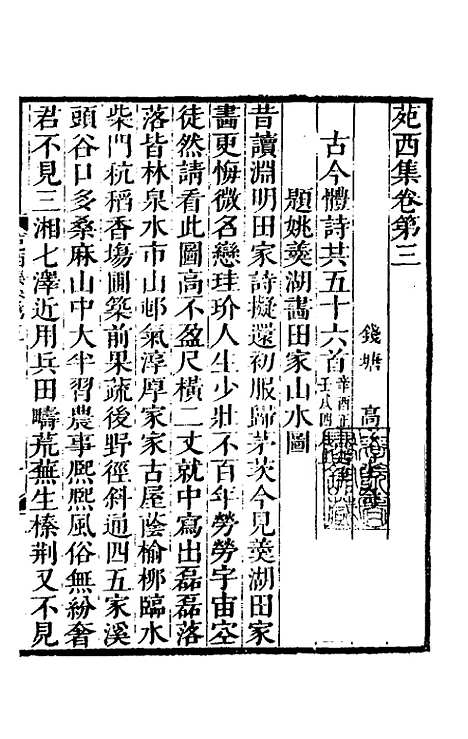 苑西集卷第三
錢塘 高
古今體詩共五十六首 辛酉正 壬戌四
題姚羹湖畵田家山水圖
昔讀淵明田家詩擬還初服歸茅茨今見羹湖田家
畵更悔微名戀珪玠人生少壯不百年勞勞宇宙空
徒然請看此圖高不盈尺橫二丈就中寫出磊磊落
落皆林泉水市山邨氣淳厚家家古屋蔭榆柳臨水
柴門秔稻香塲圃築前果蔬後野徑斜通四五家溪
頭谷口多桑麻山中大半習農事熈熈風俗無紛奢
君不見三湘七澤近用兵田疇荒蕪生榛荆又不見